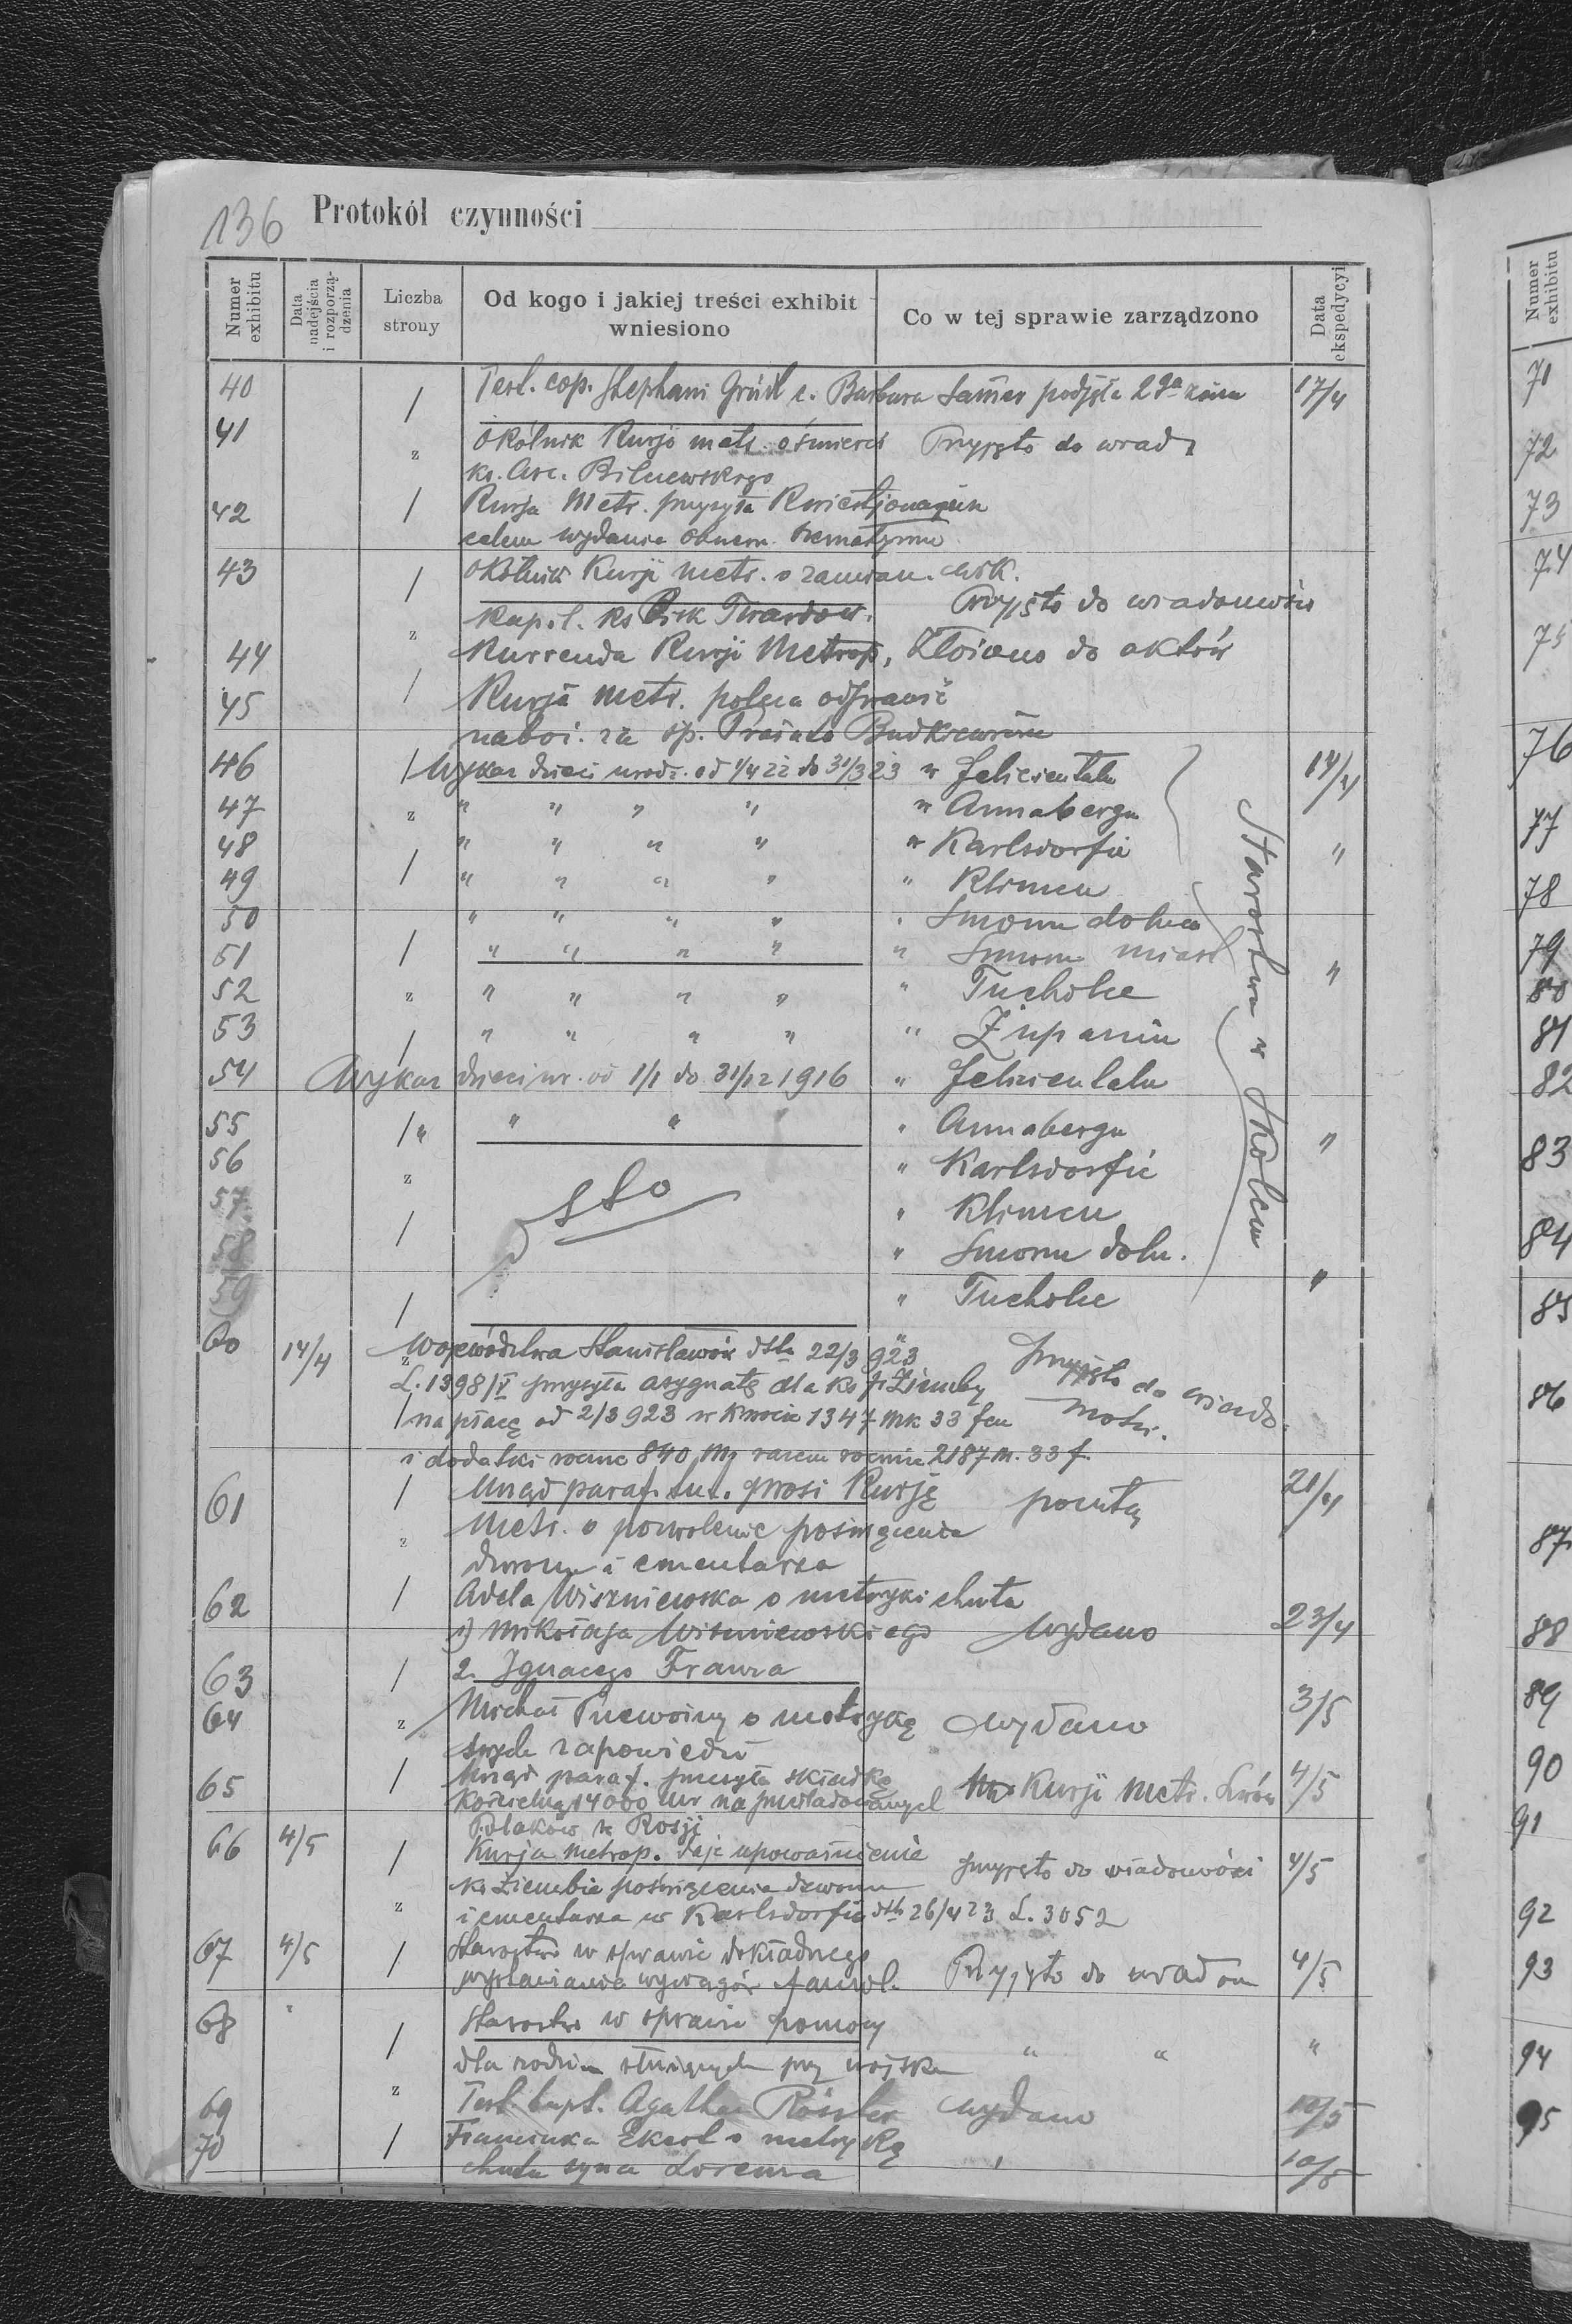 136 Protokół czynności
Numer exhibitu
Data nadejścia i rozporządzenia
Liczba strony
Od kogo i jakiej treści exhibit wniesiono
Co w tej sprawie zarządzono
Data ekspedycyi
40 1 Test. cop. Stephani Gründl c. Barbara 17/4
41 z Okólnik Kurji metr. o śmierci Przyjęto do wiad
ks. Arc. Bilczewskiego
42 1 Kurja Metr. przysyła Kwestjonarjusz
celem wydania
43 1 Okólnik Kurji metr. o zamian.
kapit. ks Bisk Twardow. Przyjęto do wiadomości
44 z Kurrenda Kurji Metrop. Złożono do aktów
45 1 Kurja metr. poleca odprawić
naboż. za śp. Prałata Budkiewicza
46 1 Wykaz dzieci urodz. od 1/4 22 do 31/3 23 w Felicientalu 14/4
47 z " " " " " Annabergu
48 " " " " w Karlsdorfie "
49 1 " " " " " Klimcu
50 " " " " " Smorzu dolnem
51 1 " " " " " Smorzu miast "
52 z " " " " " Tucholce
53 1 " " " " " Żupaniu
Starostwu w Skolem
54 Wykaz dzieci ur. od 1/1 do 31/12 1916 " Felicientalu
55 1 " " " " Annabergu "
56 z " Karlsdorfie
57 1 " Klimcu
58 " Smorzu doln.
59 1 " Tucholce "
60 14/4 z Województwa Stanisławów dtto 22/3 923 przyjęto do wiado-
L. 1398/V przysyła asygnatę dla ks J. Ziemby mości.
1 na płacę od 2/3 923 w kwocie 1347 mk 33 fen
i dodatki roczne 840 Mk razem rocznie 2187 M. 33 f.
61 1 Urząd paraf. tut. prosi Kurję pocztą 21/4
z Metr. o pozwolenie poświęcenia
dzwonu i cmentarza
62 1 Adela Wiszniewska o metryki chrztu
1) Mikołaja Wiszniewskiego Wydano 23/4
63 1 2. Ignacego Franza
64 z Michał Przewoźny o metrykę wydano 3/5
swych zapowiedzi
65 1 Urząd paraf. przesyła składkę Kurji Metr. Lwów 4/5
kościelną 14000 Mk na prześladowanych
Polaków w Rosji
66 4/5 1 Kurja Metrop. daje upoważnienie przyjęto do wiadomości 4/5
ks Ziembie poświęcenia dzwonu
z i cmentarza w Karlsdorfie dtto 26/4 23 L. 3052
67 4/5 1 Starostwo w sprawie dokładnego
wystawiania wyciągów Przyjęto do wiadom 4/5
68 " 1 Starostwo w sprawie pomocy
dla rodzin służących przy wojsku " " "
69 z Test. bapt. Agathae Rössler wydano 10/5
70 1 Franciszka Ekert o metrykę " 10/5
chrztu syna Lorenza
Numer exhibitu
71
72
73
74
75
76
77
78
79
80
81
82
83
84
85
86
87
88
89
90
91
92
93
94
95